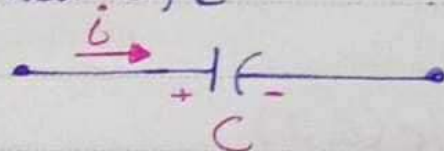 i
+ -
C